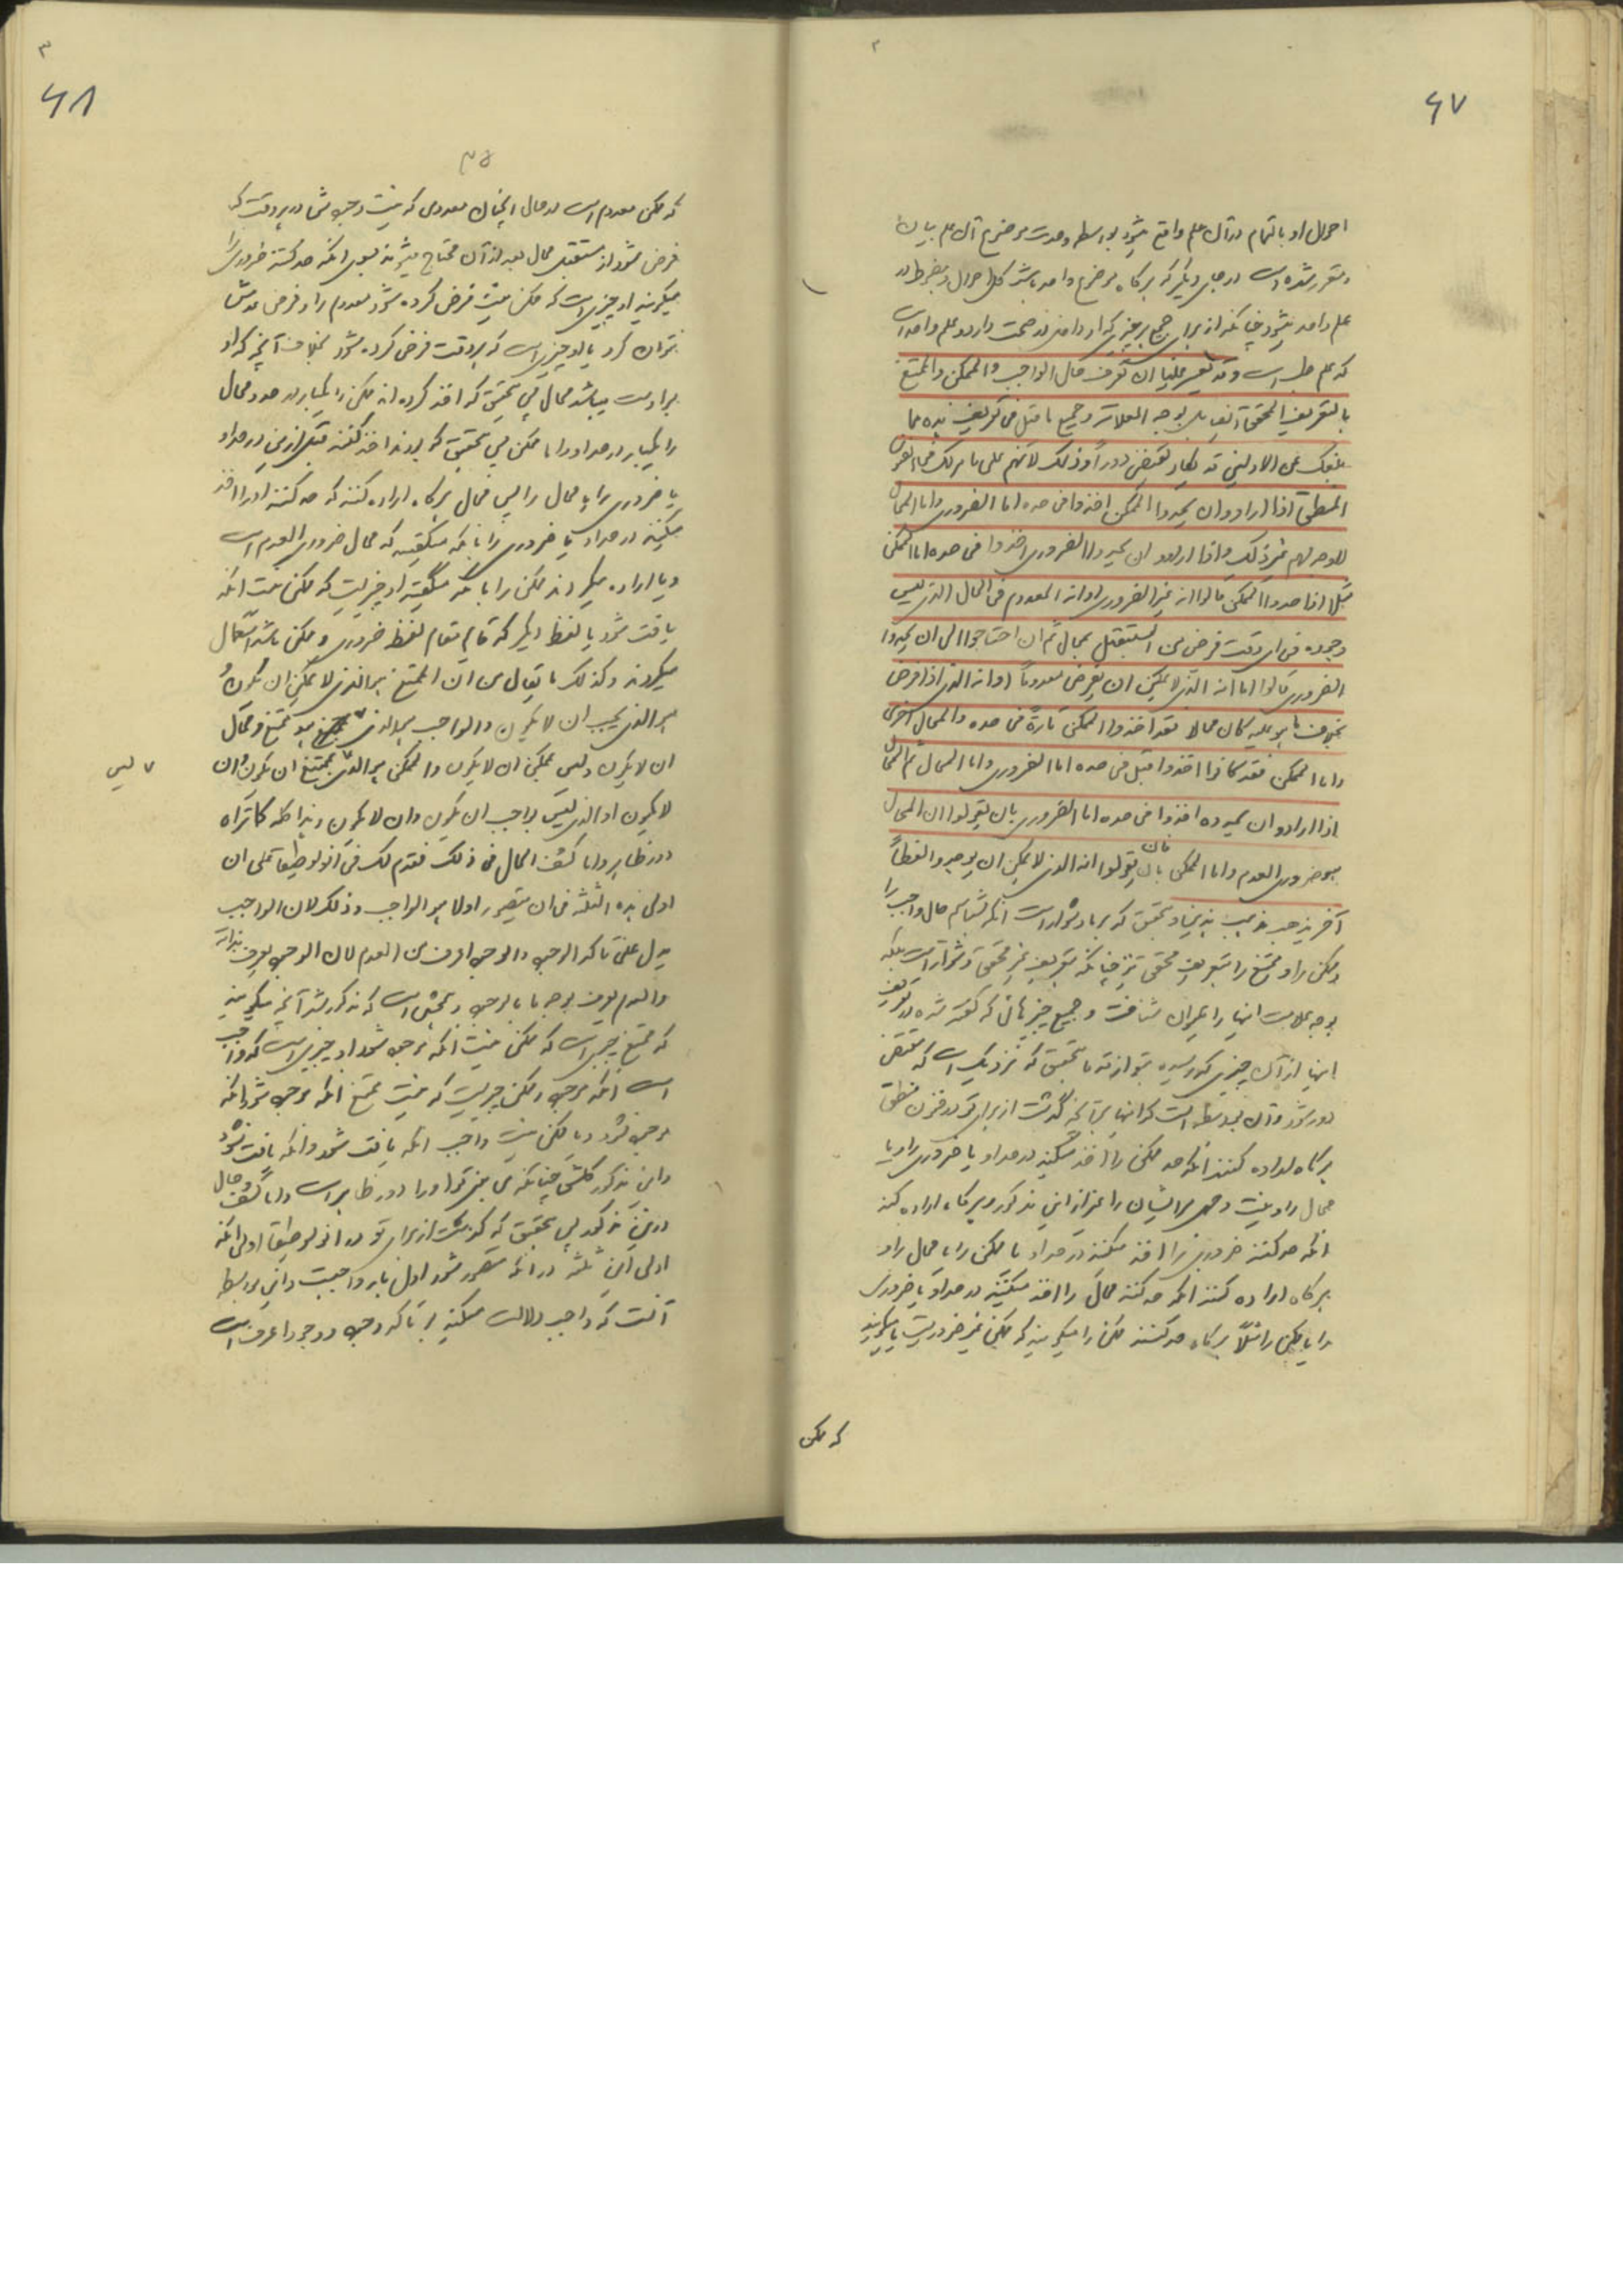 ۶۷
احوال او بالتمام در آن علم واقع میشود بواسطه وحدت موضوع آن علم بیان
و مقرر شده است در جای دیگر که هرگاه موضوع واحد باشد کل احوال
علم واحد میشود چنانکه از برای جمیع هر چیزی که از واحدند صحت دارد و علم واحد است
که علم طب است وقد یعسر علینا ان نعرف حال الواجب والممکن والممتنع
بالتعریف المحقق ایضا بل بوجه العلامة وجمیع ما قیل فی تعریف هذه مما
بلغک عن الاولین قد یکاد یقتضی دوراً وذلک لانهم علی ما مر لک فی الفنون
المنطق اذا ارادوا ان یحدوا الممکن اخذوا فی حده اما الضروری واما المحال
لا وجه لهم غیر ذلک واذا ارادوا ان یحدوا الضروری اخذوا فی حده اما الممکن
مثلا اذا حدوا الممکن قالوا انه غیر الضروری او انه المعدوم فی الحال الذی لیس
وجوده فی ای وقت فرض من المستقبل بمحال ثم ان احتاجوا الی ان یحدوا
الضروری قالوا اما انه الذی لا یمکن ان یفرض معدوماً او انه الذی اذا فرض
بخلاف ما هو علیه کان محالا فقد اخذوا الممکن تارة فی حده والمحال اخری
واما الممکن فقد کانوا اخذوا قبل فی حده اما الضروری واما المحال ثم المحال
اذا ارادوا ان یحدوه اخذوا فی حده اما الضروری بان یقولوا ان المحال
هو ضروری العدم واما الممکن بان یقولوا انه الذی لا یمکن ان یوجد او لفظاً
آخر یذهب مذهب هذین و بتحقیق که بر ما دشوار است آنکه بشناسیم حال واجب را
و ممکن را و ممتنع را بتعریف محقق نیز چنانکه بتعریف غیر محقق دشوار است بلکه
بوجه علامت اینها را میتوان شناخت و جمیع چیزهائی که گفته شده در تعریف
اینها از آن چیزی که رسیده بتو از قدما بتحقیق که نزدیک است که مقتضی
دور شود و آن بواسطه آنست که اینها بر آنچه گذشت از برای تو در فنون منطق
هرگاه اراده کنند آنکه حد ممکن را اخذ میکنند در حد او یا ضروری را و یا
محال را و نیست وجهی مر ایشان را غیر از این مذکور و هرگاه اراده کنند
آنکه حد کنند ضروری را اخذ میکنند در حد او یا ممکن را یا محال را و
هرگاه اراده کنند آنکه حد کنند محال را اخذ میکنند در حد او یا ضروری
را یا ممکن را مثلاً هرگاه حد کنند ممکن را میگویند که ممکن غیر ضروریست یا میگویند
که ممکن
۶۸
۳۵
که ممکن معدوم است در حال آنچنان معدومی که نیست وجود شما در هر وقت که
فرض شود از مستقبل محال بعد از آن محتاج میشوند بسوی آنکه حد کنند ضروری را
میگویند او چیزی است که ممکن نیست فرض کرده شود معدوم را و فرض عدمش
نتوان کرد یا او چیزی است که هر وقت فرض کرده شود بخلاف آنچه که او
بر اوست میباشد محال پس بتحقیق که اخذ کرده اند ممکن را یکبار در حد و محال
را یکبار در حد او و اما ممکن پس بتحقیق که بودند اخذ کنند قبل از این در حد او
یا ضروری را یا محال را پس محال هرگاه اراده کنند که حد کنند او را اخذ
میکنند در حد او یا ضروری را بآنکه میگفتند که محال ضروری العدم است
و یا اراده میکردند ممکن را بآنکه میگفتند او چیزیست که ممکن نیست آنکه
یافت شود یا لفظ دیگر که قائم مقام لفظ ضروری و ممکن باشد استعمال
میکردند وکذلک ما یقال من ان الممتنع هو الذی لا یمکن ان یکون او
هو الذی یجب ان لا یکون والواجب هو الذی هو ممتنع و محال
ان لا یکون ولیس بممکن ان لا یکون والممکن هو الذی لیس بممتنع ان یکون وان
۷ لیس
لا یکون او الذی لیس بواجب ان یکون وان لا یکون وهذا کله کما تراه
دور ظاهر واما کشف الحال فی ذلک فقد مر لک فی انولوطیقا علی ان
اولی هذه الثلثة فی ان یتصور اولا هو الواجب وذلک لان الواجب
یدل علی تاکد الوجود والوجود اعرف من العدم لان الوجود یعرف بذاته
والعدم یعرف بوجه ما بالوجود
که ممتنع چیزی است که ممکن نیست آنکه موجود شود او چیزی است که واجب
است آنکه موجود و ممکن چیزیست که نیست ممتنع آنکه موجود شود و آنکه
موجود نشود و یا ممکن نیست واجب آنکه یافت شود و آنکه یافت نشود
و این مذکور کلش چنانکه می بینی تو او را دور ظاهر است و اما کشف حال
در این مذکور پس بتحقیق که گذشت از برای تو در انولوطیقا اولی آنکه
اولی این ثلثه در آنکه متصور شود اول بار واجبست و این بواسطه
آنست که واجب دلالت میکند بر تاکد وجود و وجود اعرف است